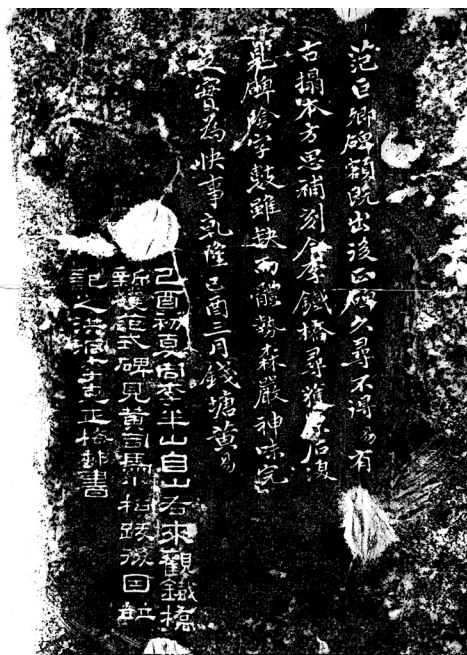 范巨卿碑額既出後正碑久尋不得易有
古搨本方思補刻今李鐵橋尋獲石復
見碑陰字數雖缺而體勢森嚴神味完
足實為快事乾隆己酉三月錢塘黃易
己酉初夏同李半山自山右來觀鐵橋
新獲范式碑見黃司馬小松跋後因
記之洪洞李克正書